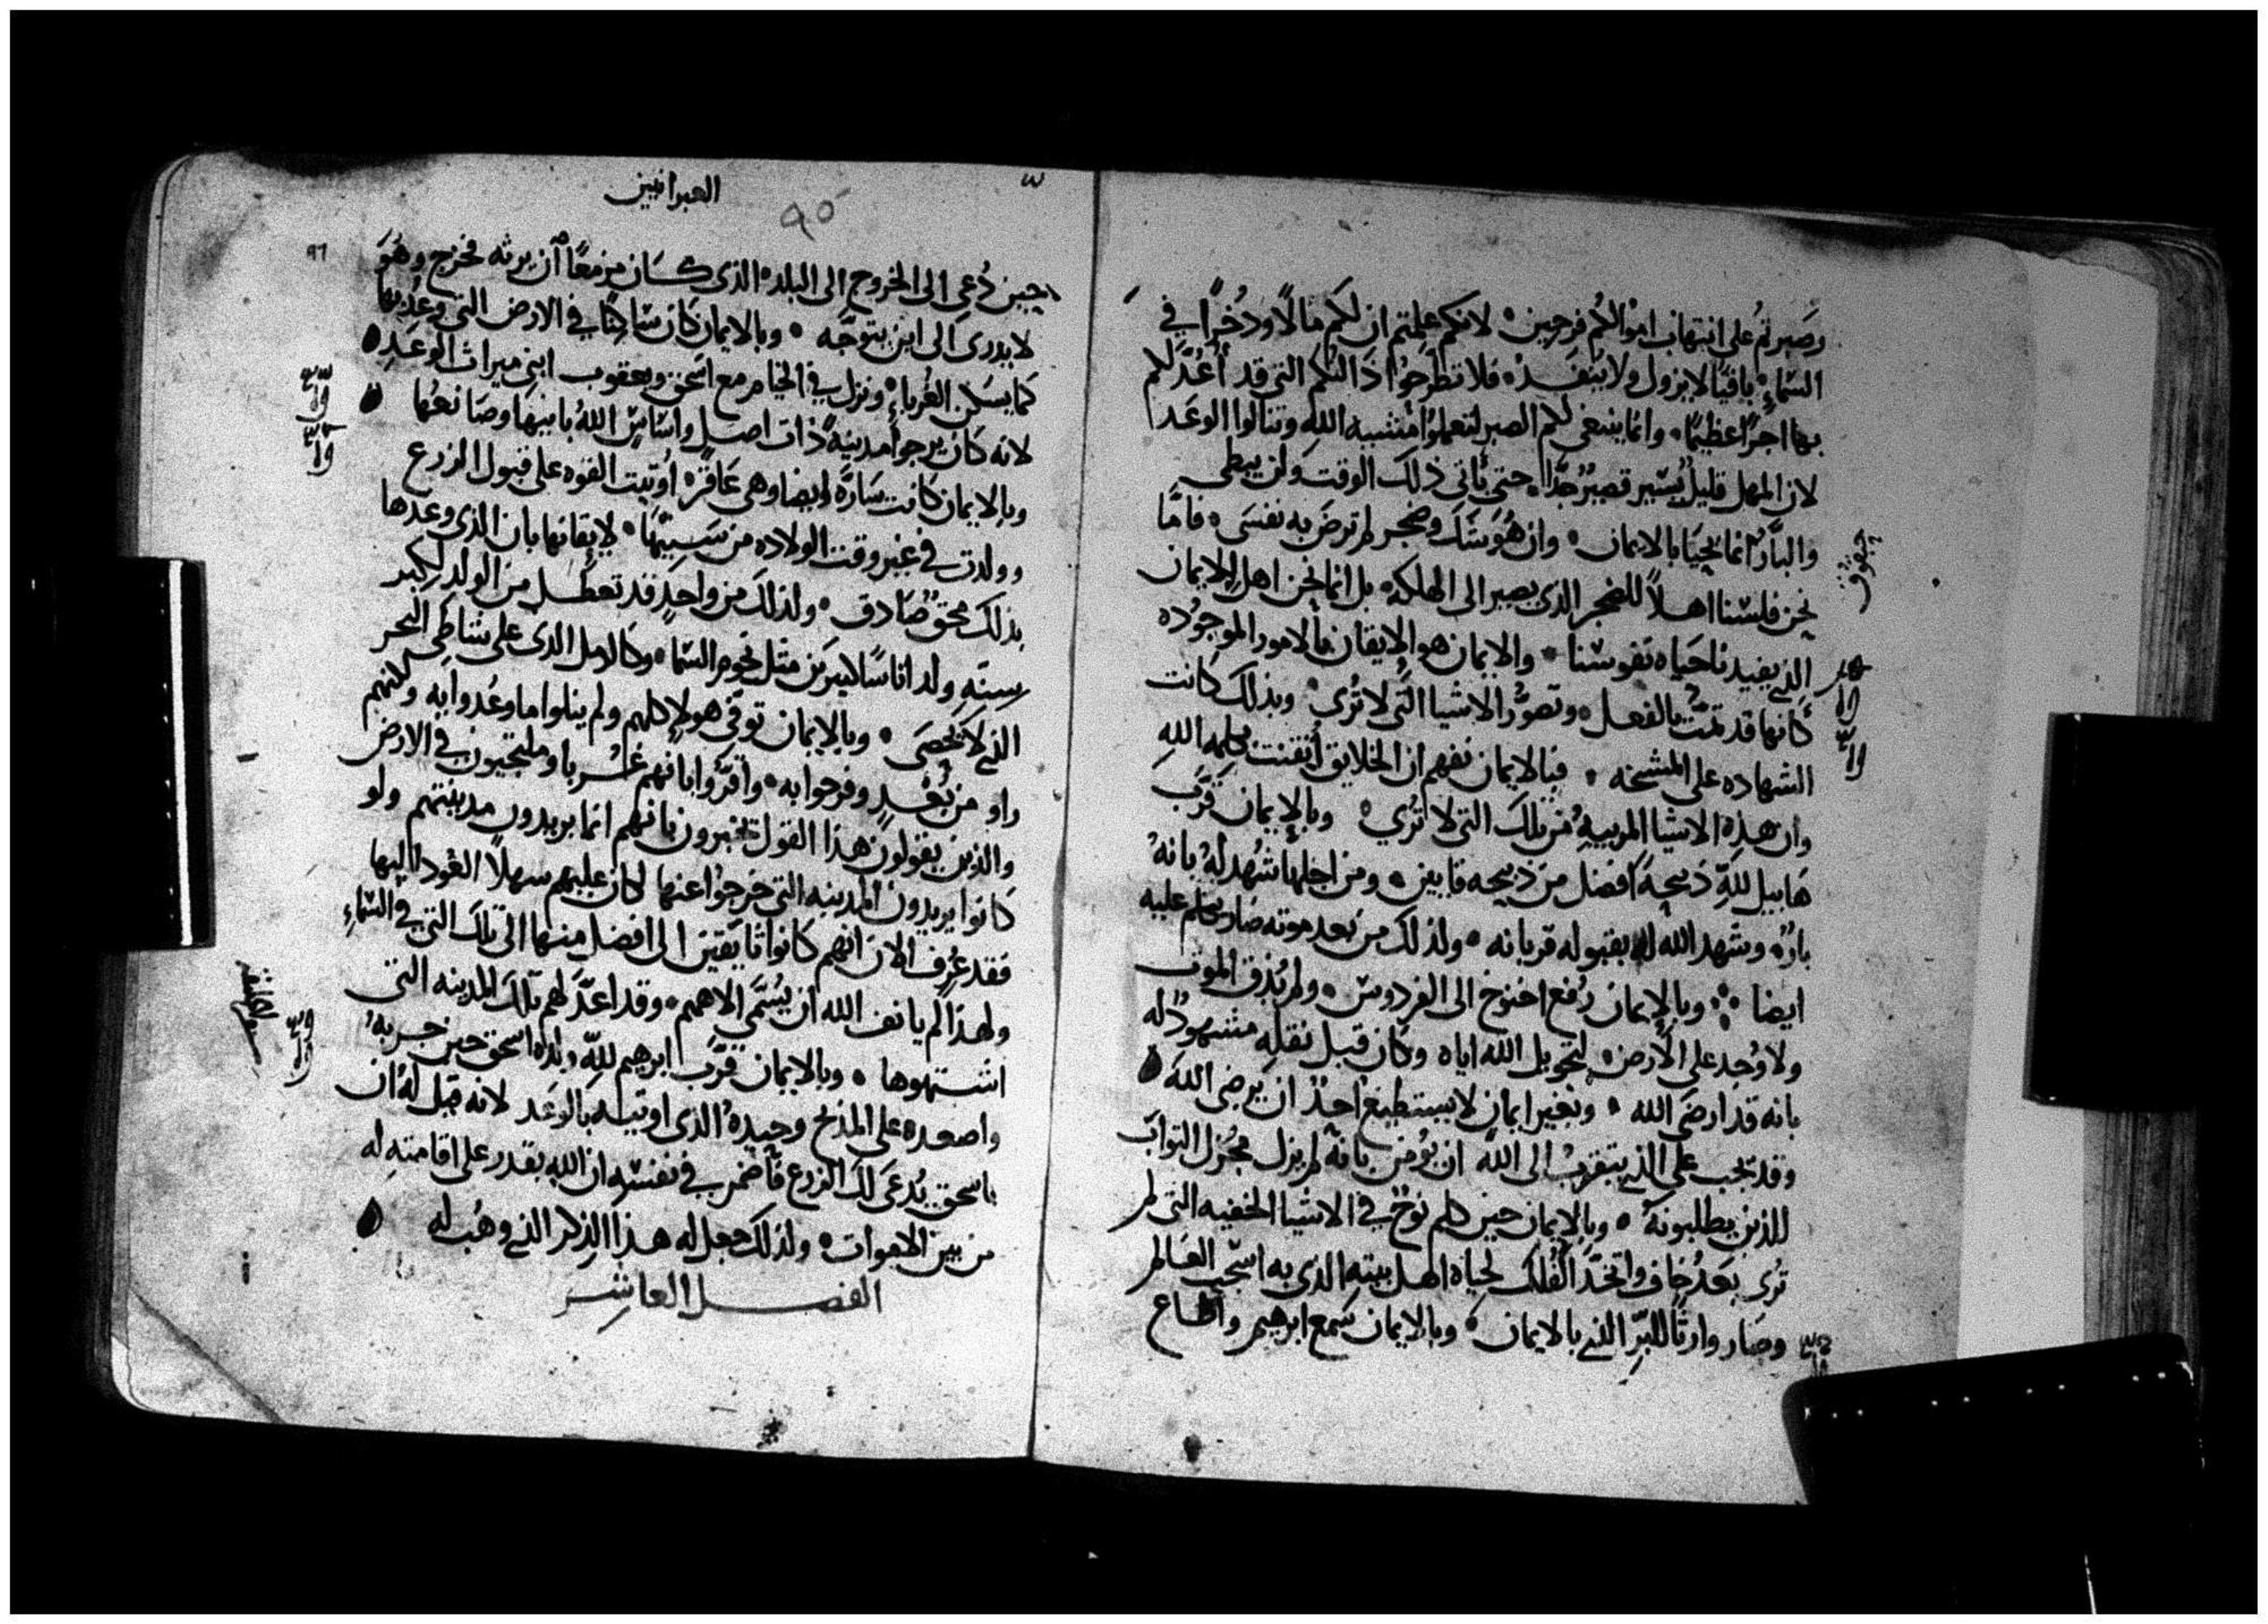 وصبرتم على انتهاب اموالكم فرحين لانكم علمتم ان لكم مالًا وذُخرًا في
السماءِ باقيًا لا يزول ولا ينفد فلا تطرحوا ذَالتكم التي قد أُعدَّ لكم
بها اجرًا عظيمًا وانما ينبغي لكم الصبر لتعملوا مشيه الله وتنالوا الوعد
لان المهل قليل يسير قصيرُ جدًّا حتى ياتى ذلك الوقت ولن يبطى
والبارُّ انما يحيا بالايمان وان هُوَ شك وضجر لم ترضَ به نفسى فامّا
حبقوق
نحن فلسنا اهلاً للضجر الذى يصير الى الهلكه بل انما نحن اهل الايمان
الذى يفيدنا حياه نفوسنا والايمان هو الايقان بالامور الموجوده
كانها قد تمّت بالفعل وتصوُّر الاشيا التى لا تُرى وبذلك كانت
الشهاده على المشيخه فبالايمان نفهم ان الخلايق أتقنت بكلمه اللهِ
وان هذه الاشيا المرييه من تلك التى لا تُرى وبالإيمان قرَّب
هَابيل للهِ ذبيحةً افضل من ذبيحه قايين ومن اجلها شُهد لهُ بانهُ
بارٌّ وشهد الله له بقبوله قربانه ولذلك من بعد موته صار يتكلم عليه
ايضا وبالإيمان رُفع اخنوخ الى الفردوس ولم يُذق الموت
ولا وُجد على الأرض لتحويل الله اياه وكان قبل نقله مشهودٌ له
بانه قد ارضَى الله وبغير ايمانٍ لا يستطيع احدٌ ان يرضى اللهَ
وقد يجب على الذى يتقرب الى اللهِ ان يؤمن بانه لم يزل مجزل الثواب
للذين يطلبونهُ وبالايمان حين كلم نوح في الاشيا الخفيه التى لم
تُرى بعدُ خاف واتخذ الفلك لحياه اهل بيته الذى به اشجب العالم
وصار وارثًا للبرِّ الذى بالايمان وبالايمان سمع ابرهيم واطاع
العبرانيين
٩٥
٩٦
حين دُعى الى الخروج الى البلده الذى كان مزمعًا أن يرثه فخرج وهُوَ
لا يدرى الى اين يتوجّه وبالايمان كان ساكنًا في الارض التى وعد بها
كما يسكن الغُرباءِ ونزل في الخيام مع اسحق ويعقوب ابنى ميراث الوعدِ
لانه كان يرجوا مدينةً ذات اصل واساسٍ اللهُ بانيها وصَانعُها
وبالايمان كانت سَارَّه ايضا وهى عَاقرًا أوتيت القوه على قبول الزرع
وولدت في غير وقت الولاده من سنيها لايقانها بان الذى وعدها
بذلك محقٌ صَادق ولذلك من واحدٍ قد تعطل من الولد لكبر
سنّهِ ولد اناسًا كثيرين مثل نجوم السما وكالرمل الذى على شاطى البحر
الذى لا يحصَى وبالايمان توفى هولاِ كلهم ولم ينلوا ما وعُدوا به ولكنهم
راو من بُعْدٍ وفرحوا به واقرُّوا بانهم غربا وملتجيون في الارض
والذين يقولون هذا القول يخبرون بانهم انما يريدون مدينتهم ولو
كانوا يريدون المدينه التى خرجوا عنها لكان عليهم سهلاً العُود اليها
فقد عُرف الان انهم كانوا تايقين الى افضل منها الى تلك التى في السماءِ
ولهذا لم يانف الله ان يُسَمَّى الاههم وقد اعدَّ لهم تلك المدينه التى
اشتهوها وبالايمان قرَّب ابرهيم للهِ ولده اسحق حين جربهُ
واصعده على المذبح وحيدهُ الذى اوتيه بالوعد لانه قيل لهُ ان
باسحق يُدعَى لك الزرع فاضمر في نفسه ان الله يقدر على اقامته له
من بين الاموات ولذلك جعل له هذا الذِكر الذى وهُب له
الفصل العاشر